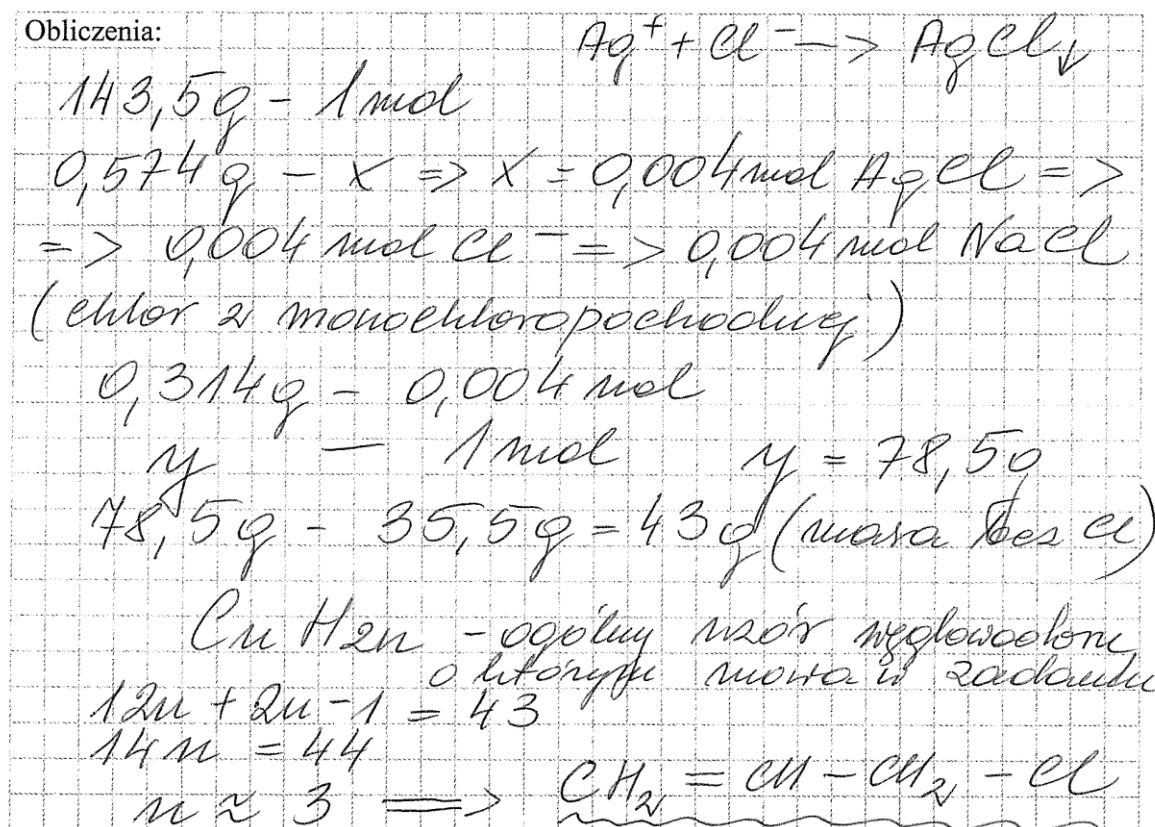 Obliczenia:
Ag⁺ + Cl⁻ —> AgCl↓
143,5g - 1 mol
0,574g - x => x = 0,004 mol AgCl =>
=> 0,004 mol Cl⁻ => 0,004 mol NaCl
(chlor z monochloropochodnej)
0,314g - 0,004 mol
y — 1 mol y = 78,5g
78,5g - 35,5g = 43g (masa bez Cl)
CnH2n - ogólny wzór węglowodoru,
o którym mowa w zadaniu
12n + 2n - 1 = 43
14n = 44
n ≈ 3 => CH₂ = CH - CH₂ - Cl